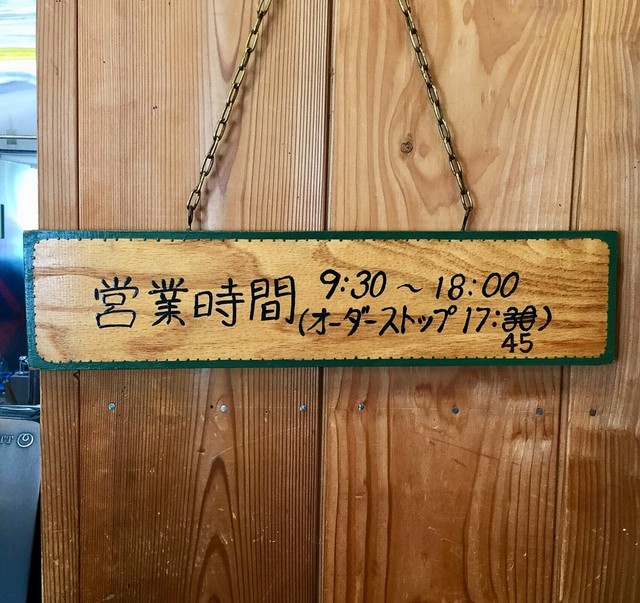 営業時間 9:30 ～ 18:00
(オーダーストップ 17:30)
45